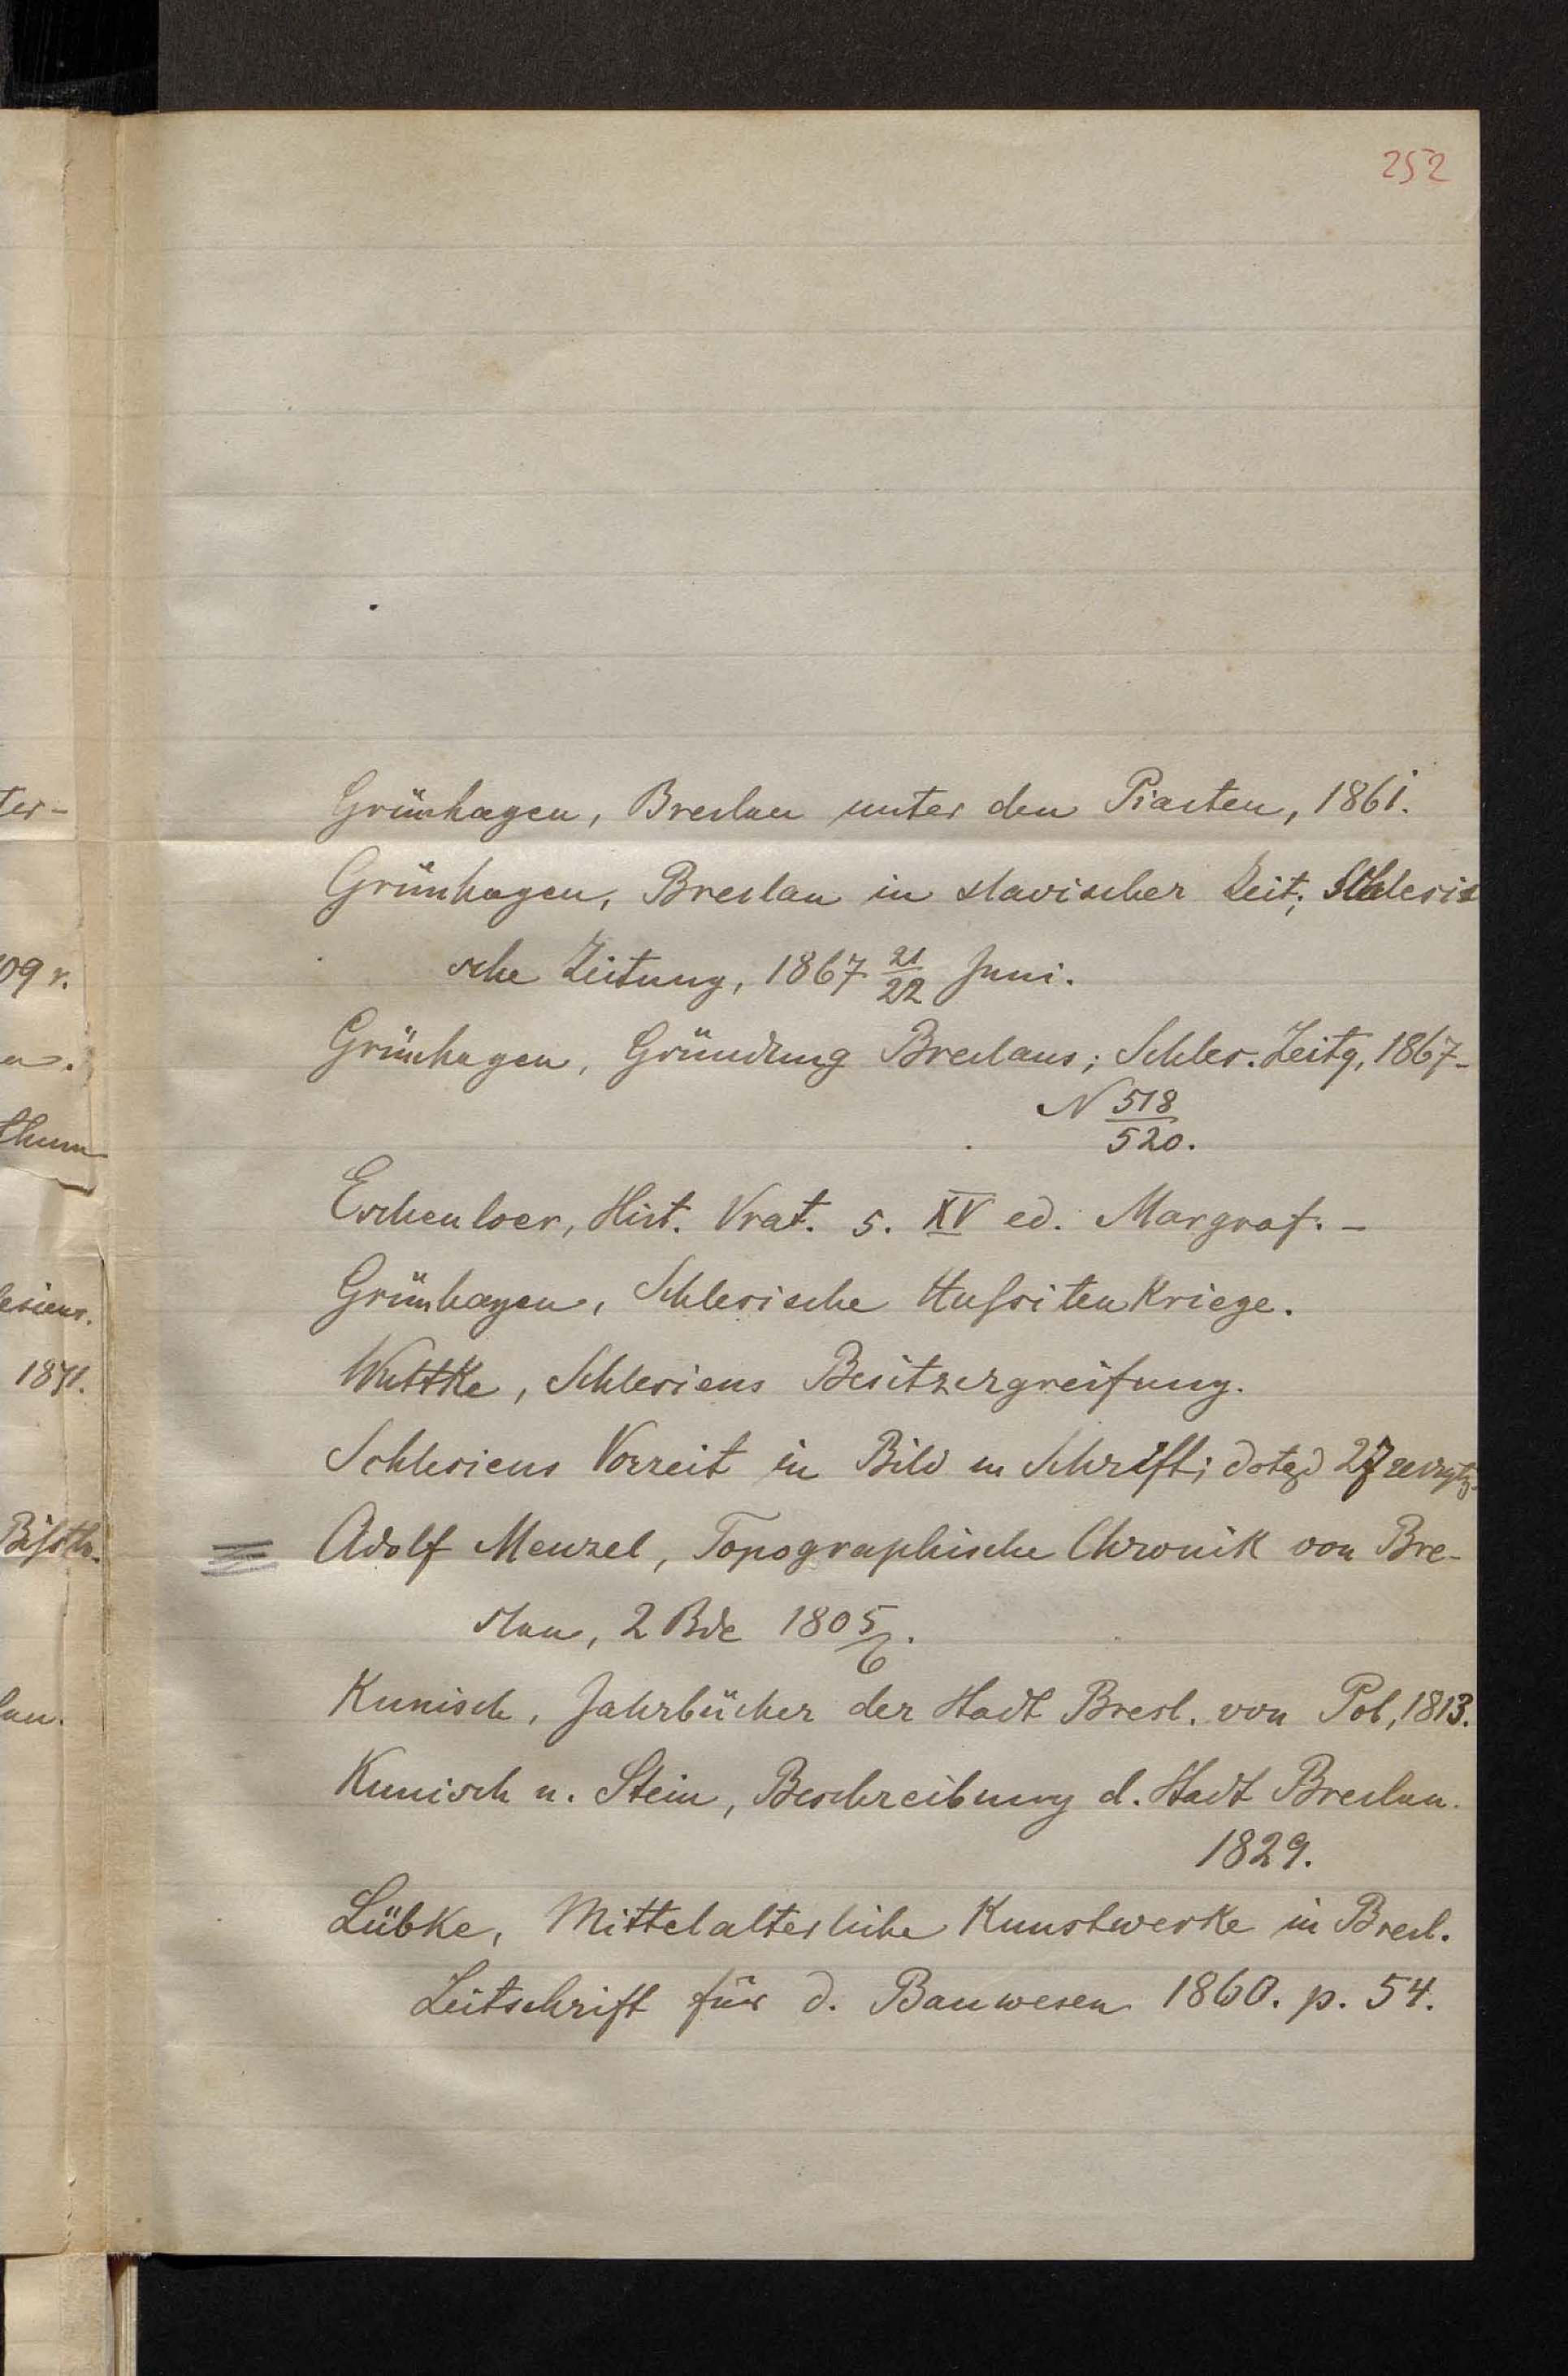 252
Grünhagen, Breslau unter den Piasten, 1861.
Grünhagen, Breslau in slavischer Zeit; Schlesis
sche Zeitung, 1867 21/22 Juni.
Grünhagen, Gründung Breslaus; Schles. Zeitg, 1867-
N 518/520.
Eschenloer, Hist. Vrat. s. XV ed. Margraf. -
Grünhagen, Schlesische Hussiten Kriege.
Wuttke, Schlesiens Besitzergreifung.
Schlesiens Vorzeit in Bild u Schrift; dotąd 27 zeszyty.
Adolf Menzel, Topographische Chronik von Bre-
slau, 2 Bde 1805/6.
Kunisch, Jahrbücher der Stadt Bresl. von Pol, 1813.
Kunisch u. Stein, Beschreibung d. Stadt Breslau.
1829.
Lübke, Mittelalterliche Kunstwerke in Bresl.
Zeitschrift für d. Bauwesen 1860. p. 54.
ter-
09 r.
thum
lesiens.
1871.
Bissth.
lau.